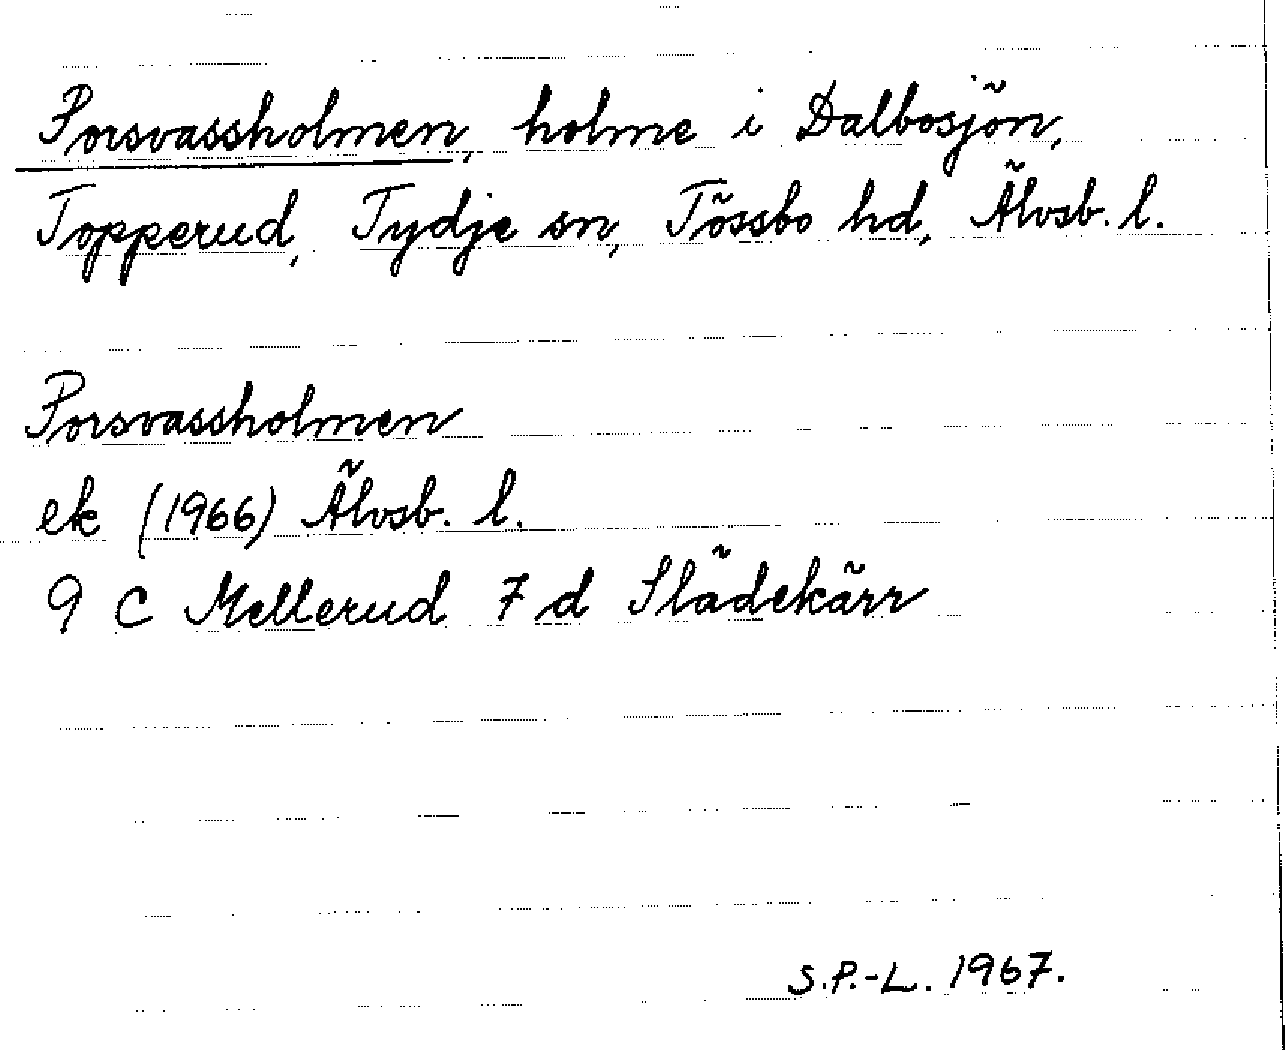 Porsvassholmen, holme i Dalbosjön,
Topperud, Tydje sn, Tössbo hd, Älvsb. l.
Porsvassholmen
ek (1966) Älvsb. l.
9 C Mellerud 7 d Slädekärr
S.P.-L. 1967.